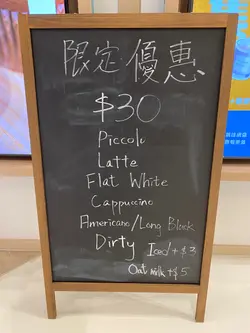 限定優惠
$30
Piccolo
Latte
Flat White
Cappuccino
Americano/Long Black
Dirty Iced +$3
Oat milk +$5